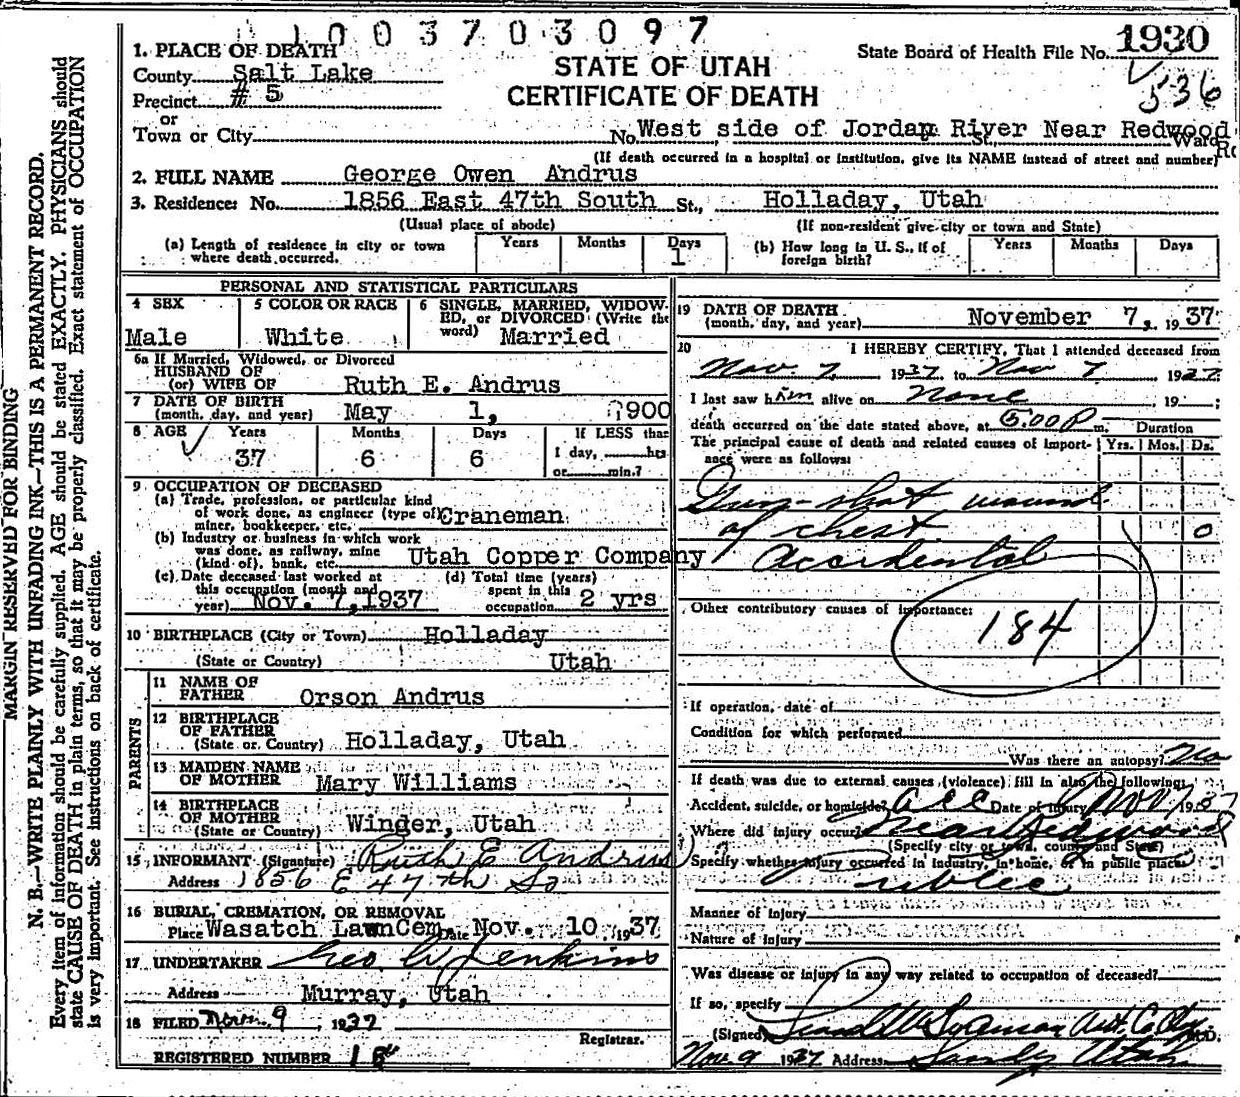 1003703097
1. PLACE OF DEATH
County Salt Lake
Precinct # 5
or
Town or City
STATE OF UTAH
CERTIFICATE OF DEATH
State Board of Health File No. 1930
536
No. West side of Jordan River Near Redwood St., Ward
(If death occurred in a hospital or institution, give its NAME instead of street and number)
2. FULL NAME George Owen Andrus
3. Residence: No. 1856 East 47th South St., Holladay, Utah
(Usual place of abode) (If non-resident give city or town and State)
(a) Length of residence in city or town where death occurred. Years Months Days 1
(b) How long in U. S., if of foreign birth? Years Months Days
PERSONAL AND STATISTICAL PARTICULARS
4 SEX Male
5 COLOR OR RACE White
6 SINGLE, MARRIED, WIDOWED, or DIVORCED (Write the word) Married
6a If Married, Widowed, or Divorced
HUSBAND OF
(or) WIFE OF Ruth E. Andrus
7 DATE OF BIRTH
(month, day, and year) May 1, 1900
8 AGE Years 37 Months 6 Days 6
If LESS than
1 day, hrs
or min.?
9 OCCUPATION OF DECEASED
(a) Trade, profession, or particular kind
of work done, as engineer (type of)
miner, bookkeeper, etc. Craneman
(b) Industry or business in which work
was done, as railway, mine
(kind of), bank, etc. Utah Copper Company
(c) Date deceased last worked at
this occupation (month and
year) Nov. 7, 1937
(d) Total time (years)
spent in this
occupation 2 yrs
10 BIRTHPLACE (City or Town) Holladay
(State or Country) Utah
PARENTS
11 NAME OF
FATHER Orson Andrus
12 BIRTHPLACE
OF FATHER
(State or Country) Holladay, Utah
13 MAIDEN NAME
OF MOTHER Mary Williams
14 BIRTHPLACE
OF MOTHER
(State or Country) Winger, Utah
15 INFORMANT (Signature) Ruth E Andrus
Address 1856 E 47th So
16 BURIAL, CREMATION, OR REMOVAL
Place Wasatch Lawn Cem. Date Nov. 10 1937
17 UNDERTAKER Geo. W Jenkins
Address Murray, Utah
18 FILED Nov. 9, 1937
Registrar.
REGISTERED NUMBER
19 DATE OF DEATH
(month, day, and year) November 7, 1937
20 I HEREBY CERTIFY, That I attended deceased from
Nov. 7, 1937 to Nov 7 1937
I last saw him alive on None 19 ;
death occurred on the date stated above, at 5:00 P m. Duration
The principal cause of death and related causes of importance were as follows: Yrs. Mos. Ds.
Gun-shot wound
of chest 0
Accidental
Other contributory causes of importance:
184
If operation, date of
Condition for which performed
Was there an autopsy? No
If death was due to external causes (violence) fill in also the following:
Accident, suicide, or homicide? Acc Date of injury Nov 7 1937
Where did injury occur? Near Redwood
(Specify city or town, county and State)
Specify whether injury occurred in industry, in home, or in public place.
Public
Manner of injury
Nature of injury
Was disease or injury in any way related to occupation of deceased?
If so, specify
(Signed) Swanson M.D.
Nov. 9 1937 Address Sandy Utah
MARGIN RESERVED FOR BINDING
N. B.—WRITE PLAINLY WITH UNFADING INK—THIS IS A PERMANENT RECORD.
Every item of information should be carefully supplied. AGE should be stated EXACTLY. PHYSICIANS should
state CAUSE OF DEATH in plain terms, so that it may be properly classified. Exact statement of OCCUPATION
is very important. See instructions on back of certificate.